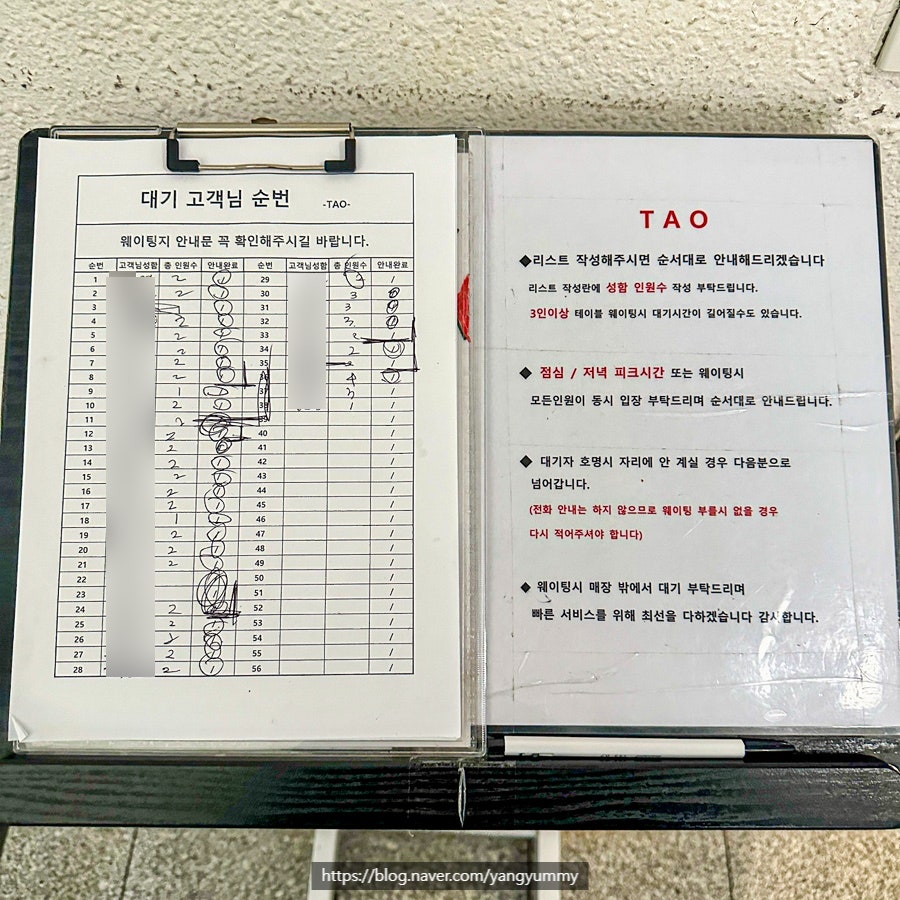 대기 고객님 순번 -TAO-
웨이팅지 안내문 꼭 확인해주시길 바랍니다.
순번 고객님성함 총 인원수 안내완료 순번 고객님성함 총 인원수 안내완료
1 2 / 29 2 /
2 2 / 30 3 /
3 / 31 3 /
4 2 / 32 3 /
5 2 / 33 2 /
6 2 / 34 2 /
7 2 / 35 2 /
8 2 / 4 /
9 1 / 3 /
10 2 / 1 /
11 2 /
12 2 / 40 /
13 2 / 41 /
14 2 / 42 /
15 2 / 43 /
16 2 / 44 /
17 2 / 45 /
18 1 / 46 /
19 2 / 47 /
20 2 / 48 /
21 2 / 49 /
22 / 50 /
23 / 51 /
24 2 / 52 /
25 2 / 53 /
26 / 54 /
27 2 / 55 /
28 2 / 56 /
TAO
◆리스트 작성해주시면 순서대로 안내해드리겠습니다
리스트 작성란에 성함 인원수 작성 부탁드립니다.
3인이상 테이블 웨이팅시 대기시간이 길어질수도 있습니다.
◆ 점심 / 저녁 피크시간 또는 웨이팅시
모든인원이 동시 입장 부탁드리며 순서대로 안내드립니다.
◆ 대기자 호명시 자리에 안 계실 경우 다음분으로
넘어갑니다.
(전화 안내는 하지 않으므로 웨이팅 부를시 없을 경우
다시 적어주셔야 합니다)
◆ 웨이팅시 매장 밖에서 대기 부탁드리며
빠른 서비스를 위해 최선을 다하겠습니다 감사합니다.
https://blog.naver.com/yangyummy